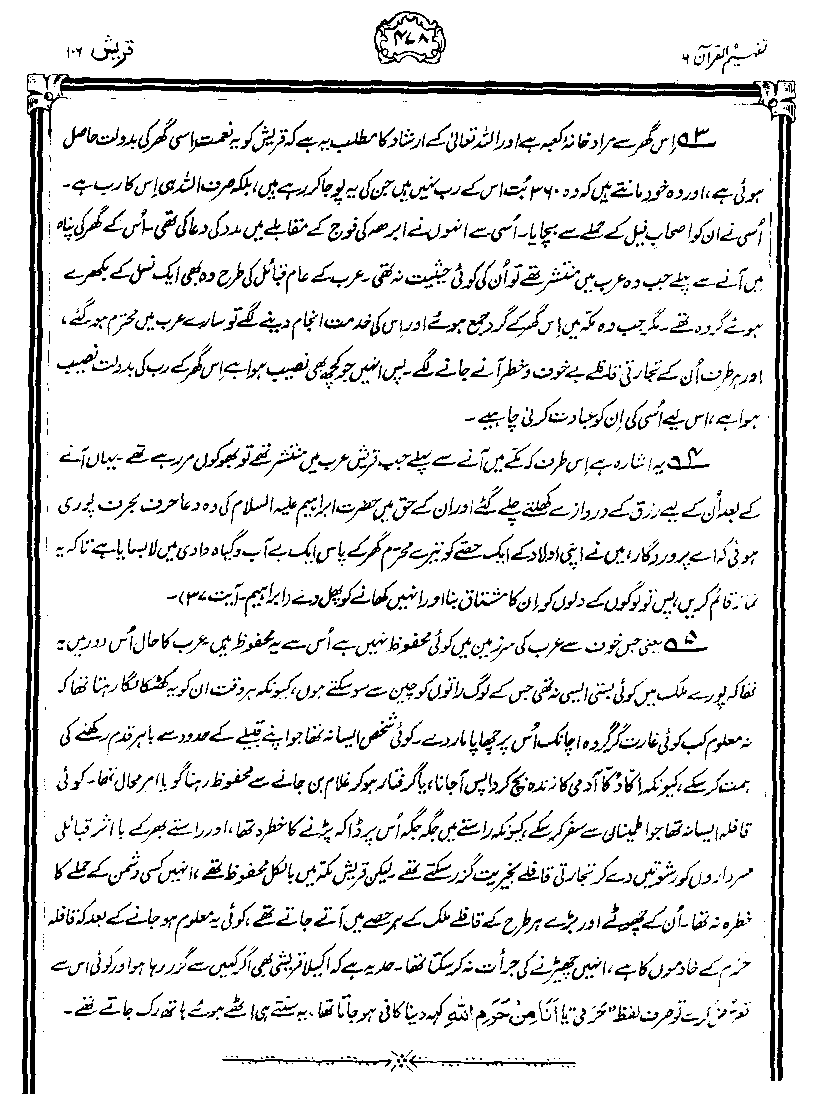 تفہیم القرآن ۶
۴۷۸
قریش ۱۰۶
۳ اِس گھر سے مراد خانۂ کعبہ ہے اور اللہ تعالیٰ کے ارشاد کا مطلب یہ ہے کہ قریش کو یہ نعمت اِسی گھر کی بدولت حاصل
ہوئی ہے، اور وہ خود مانتے ہیں کہ وہ ۳۶۰ بُت اس کے رب نہیں ہیں جن کی یہ پوجا کر رہے ہیں، بلکہ صرف اللہ ہی اِس کا رب ہے۔
اُسی نے ان کو اصحاب فیل کے حملے سے بچایا۔ اُسی سے انہوں نے ابرھہ کی فوج کے مقابلے میں مدد کی دعا کی تھی۔ اُس کے گھر کی پناہ
میں آنے سے پہلے جب وہ عرب میں منتشر تھے تو اُن کی کوئی حیثیت نہ تھی۔ عرب کے عام قبائل کی طرح وہ بھی ایک نسل کے بکھرے
ہوئے گروہ تھے۔ مگر جب وہ مکہ میں اِس گھر کے گرد جمع ہوئے اور اِس کی خدمت انجام دینے لگے تو سارے عرب میں محترم ہو گئے،
اور ہر طرف اُن کے تجارتی قافلے بے خوف و خطر آنے جانے لگے۔ پس انہیں جو کچھ بھی نصیب ہوا ہے اِس گھر کے رب کی بدولت نصیب
ہوا ہے، اس لیے اُسی کی اِن کو عبادت کرنی چاہیے۔
۴ یہ اشارہ ہے اِس طرف کہ مکّے میں آنے سے پہلے جب قریش عرب میں منتشر تھے تو بھوکوں مر رہے تھے۔ یہاں آنے
کے بعد اُن کے لیے رزق کے دروازے کھلتے چلے گئے اور ان کے حق میں حضرت ابراہیم علیہ السلام کی وہ دعا حرف بحرف پوری
ہوئی کہ اے پروردگار، میں نے اپنی اولاد کے ایک حصّے کو تیرے محترم گھر کے پاس ایک بے آب و گیاہ وادی میں لا بسایا ہے تاکہ یہ
نماز قائم کریں، پس تو لوگوں کے دلوں کو اِن کا مشتاق بنا اور انہیں کھانے کو پھل دے (ابراہیم۔ آیت ۳۷)۔
۵ یعنی جس خوف سے عرب کی سرزمین میں کوئی محفوظ نہیں ہے اُس سے یہ محفوظ ہیں۔ عرب کا حال اُس دور میں یہ
تھا کہ پورے ملک میں کوئی بستی ایسی نہ تھی جس کے لوگ راتوں کو چین سے سو سکتے ہوں، کیونکہ ہر وقت ان کو یہ کھٹکا لگا رہتا تھا کہ
نہ معلوم کب کوئی غارت گر گروہ اچانک اُس پر چھاپا مار دے۔ کوئی شخص ایسا نہ تھا جو اپنے قبیلے کے حدود سے باہر قدم رکھنے کی
ہمت کر سکے، کیونکہ اکّا دُکّا آدمی کا زندہ بچ کر واپس آجانا، یا گرفتار ہو کر غلام بن جانے سے محفوظ رہنا گویا امر محال تھا۔ کوئی
قافلہ ایسا نہ تھا جو اطمینان سے سفر کر سکے، کیونکہ راستے میں جگہ جگہ اُس پر ڈاکہ پڑنے کا خطرہ تھا، اور راستے بھر کے با اثر قبائلی
سرداروں کو رشوتیں دے کر تجارتی قافلے بخیریت گزر سکتے تھے۔ لیکن قریش مکّہ میں بالکل محفوظ تھے، انہیں کسی دشمن کے حملے کا
خطرہ نہ تھا۔ اُن کے چھوٹے اور بڑے ہر طرح کے قافلے ملک کے ہر حصے میں آتے جاتے تھے، کوئی یہ معلوم ہو جانے کے بعد کہ قافلہ
حرم کے خادموں کا ہے، انہیں چھیڑنے کی جرأت نہ کر سکتا تھا۔ حد یہ ہے کہ اکیلا قریشی بھی اگر کہیں سے گزر رہا ہو اور کوئی اس سے
تعرّض کرے تو صرف لفظ "حَرَمی" یا اَنَا مِنْ حَرَمِ اللہِ کہہ دینا کافی ہو جاتا تھا، یہ سنتے ہی اٹھے ہوئے ہاتھ رک جاتے تھے۔